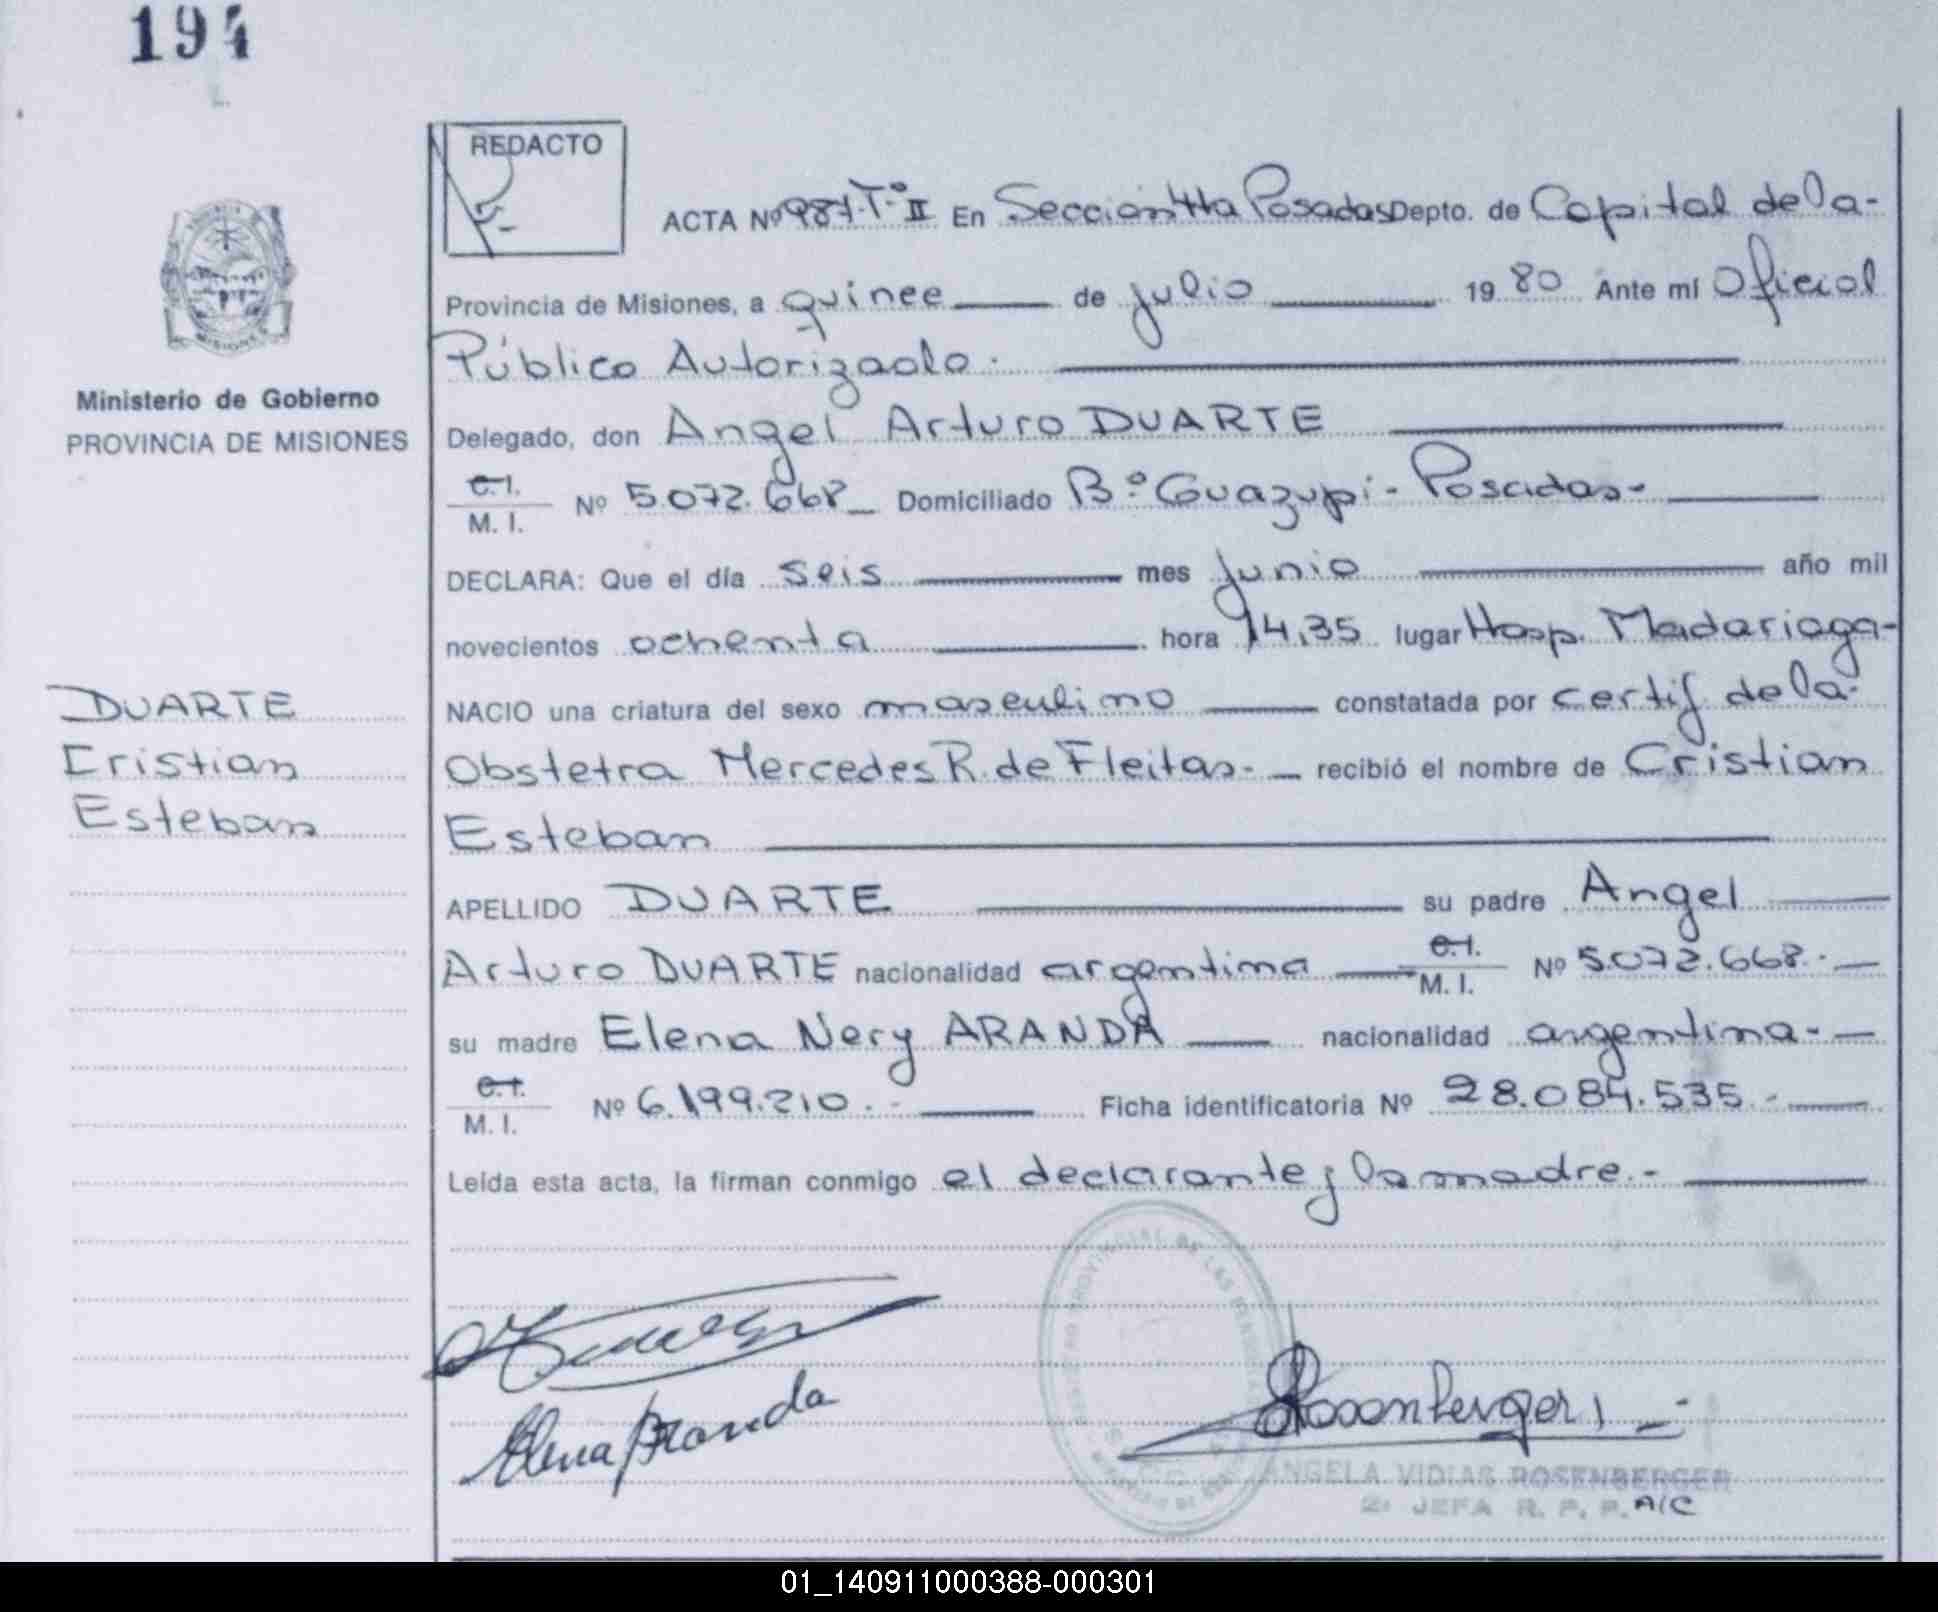 194
REDACTO
ACTA Nº 981-Tº II En Sección 4ta Posadas Depto. de Capital de la-
Provincia de Misiones, a quince de julio 19 80 Ante mí Oficial
Público Autorizado.
Delegado, don Angel Arturo DUARTE
C.I.
M. I. Nº 5.072.668 Domiciliado Bº Guazupi- Posadas-
DECLARA: Que el día seis mes junio año mil
novecientos ochenta hora 14,35 lugar Hosp. Madariaga-
NACIO una criatura del sexo masculino constatada por certif de la-
Obstetra Mercedes R. de Fleitas- recibió el nombre de Cristian
Esteban
APELLIDO DUARTE su padre Angel
Arturo DUARTE nacionalidad argentina C.I. M. I. Nº 5.072.668.-
su madre Elena Nery ARANDA nacionalidad argentina.-
C.I.
M. I. Nº 6.199.210.- Ficha identificatoria Nº 28.084.535.-
Leída esta acta, la firman conmigo el declarante y la madre.-
Elena Aranda
Rosenberger
ANGELA VIDIAS ROSENBERGER
2ª JEFA R. P. P. A/C
MISIONES
Ministerio de Gobierno
PROVINCIA DE MISIONES
DUARTE
Cristian
Esteban
01_140911000388-000301